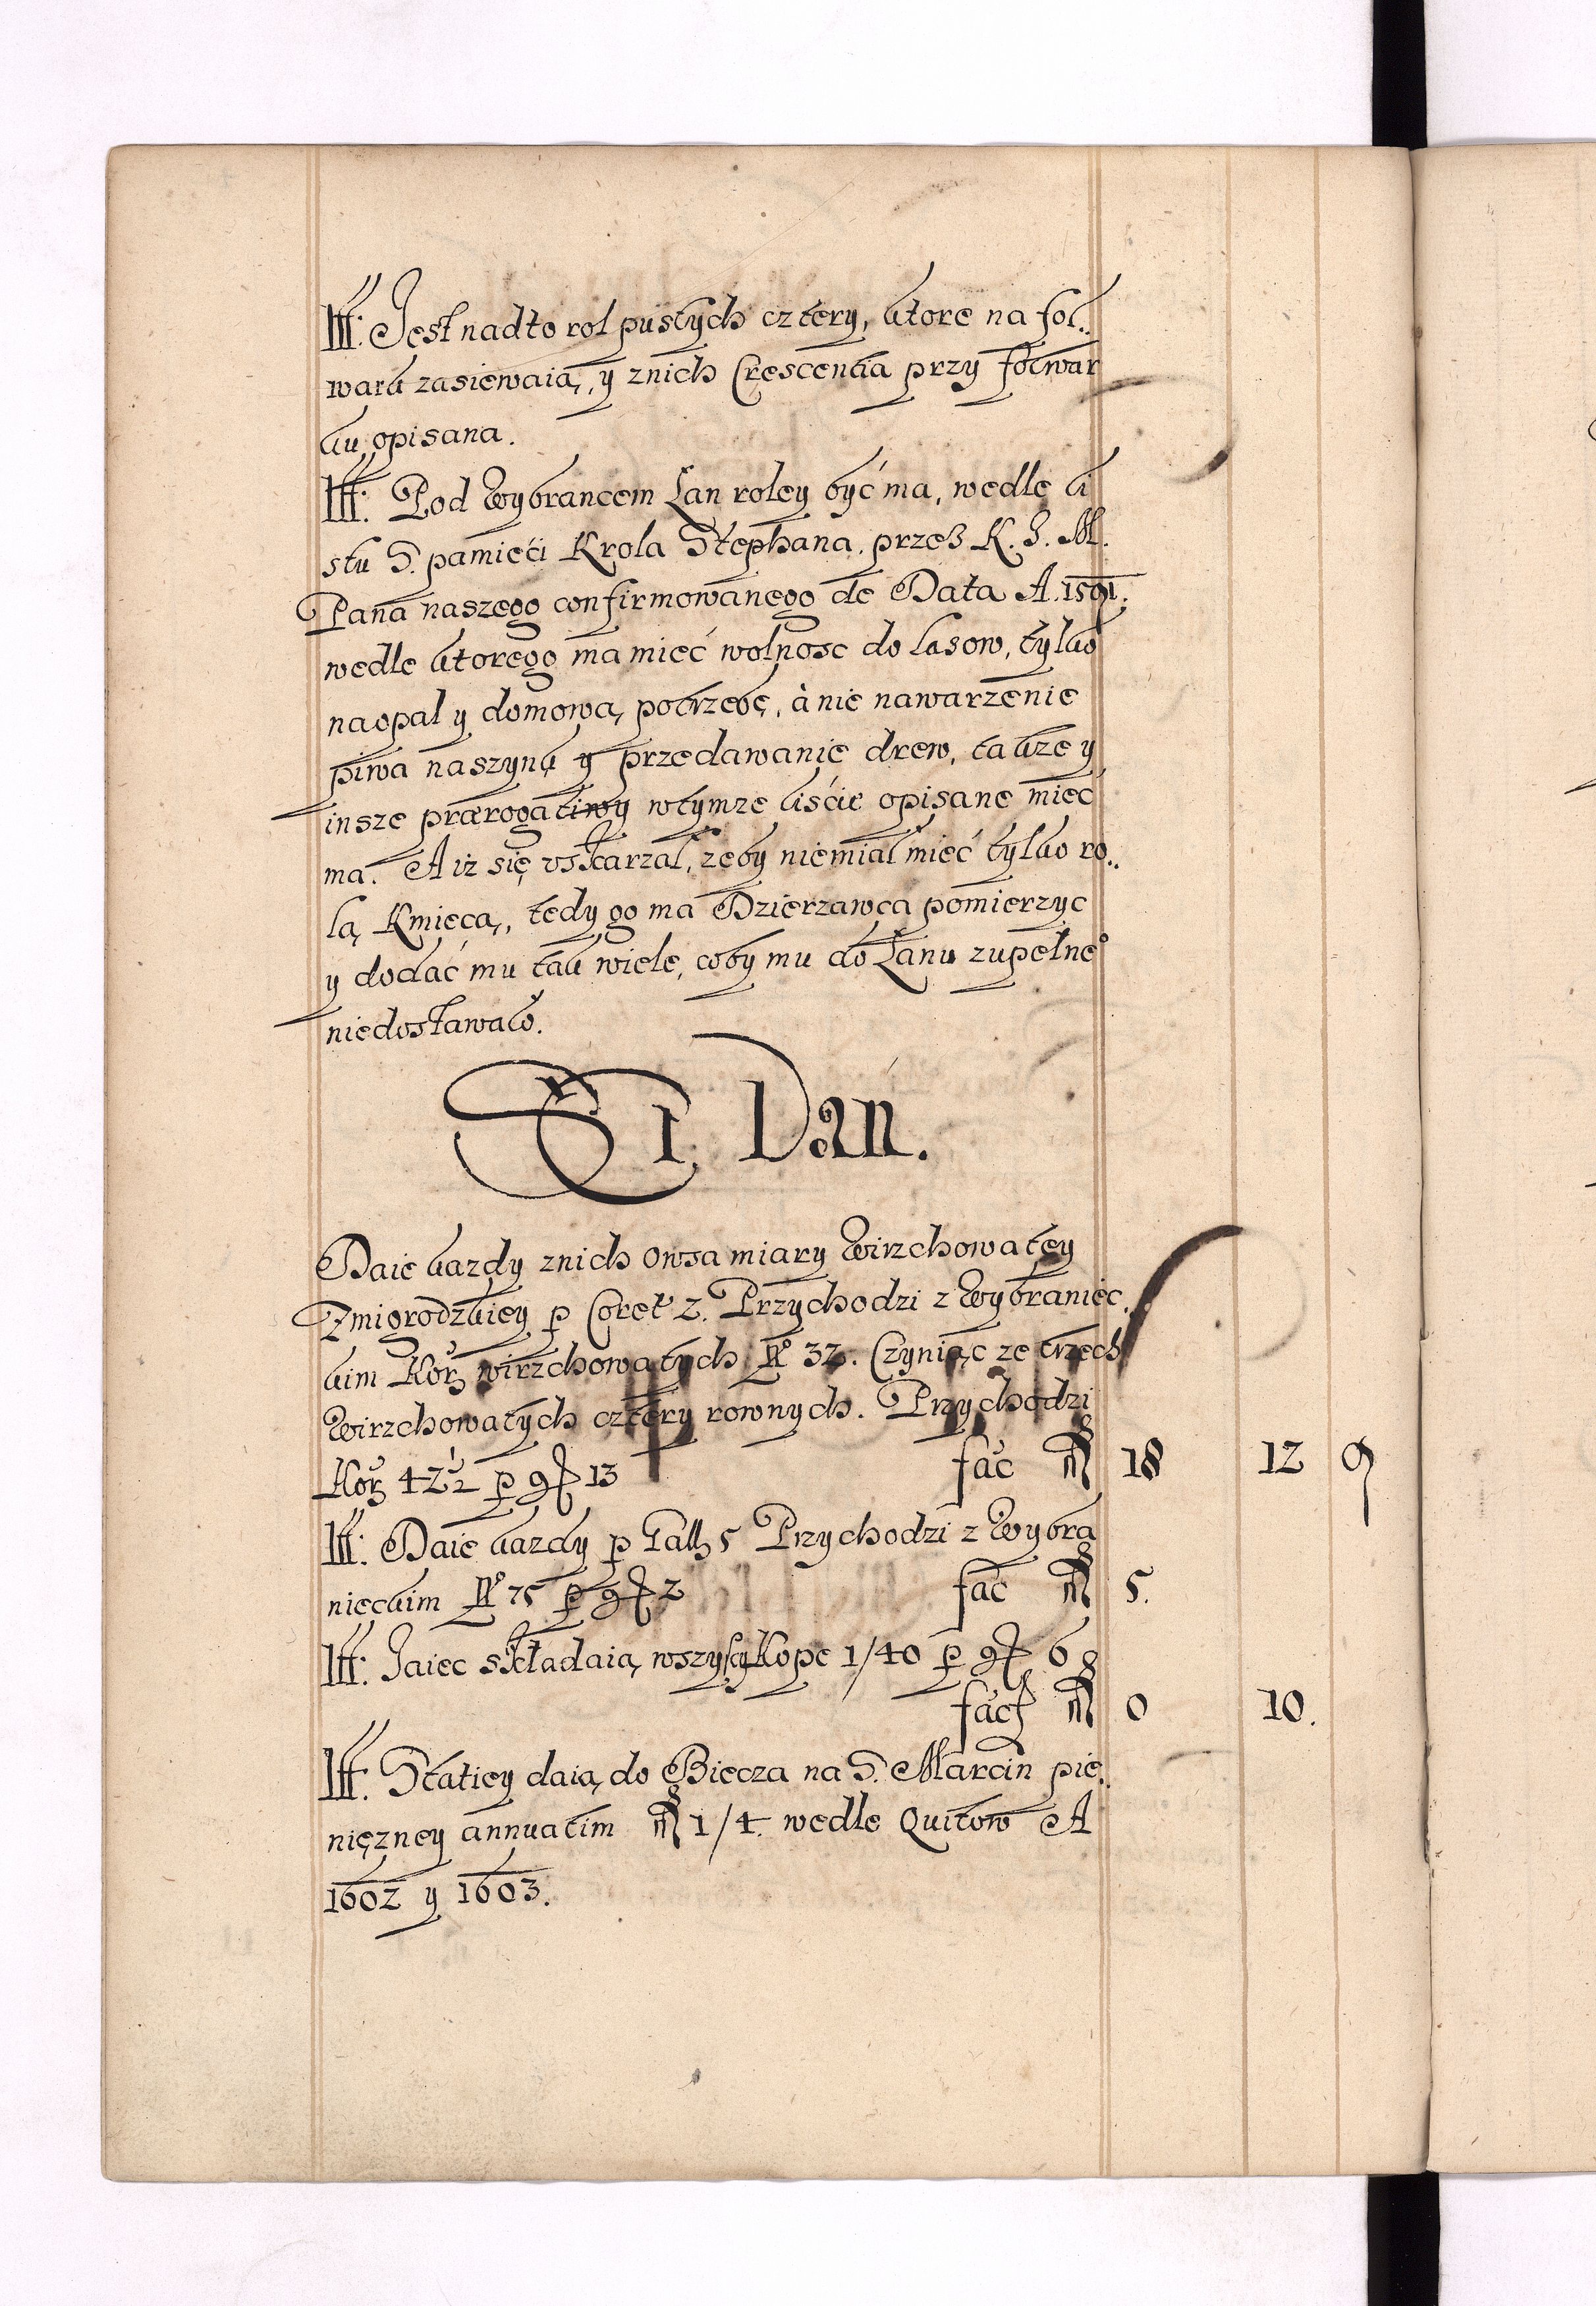 Itt: Jest nadto rol pustych cztery, ktore na fol..
wark zasiewaią, y znich Crescentia przy folwar
ku opisana.
Itt: Pod Wybrancem Łan roley być ma, wedle li
stu S. pamięci Krola Stephana, przez K. J. M.
Pana naszego confirmowanego de Data A. 1591.
wedle ktorego ma mieć wolnosc do lasow, tylko
na opal y domową potrzebę, à nie nawarzenie
piwa naszynk y przedawanie drew, takze y
insze prærogatiwy wtymze liście opisane mieć
ma. A iz się vskarzal, zeby niemial mieć tylko ro..
lą Kmiecą, tedy go ma Dzierzawca pomierzyc
y dodać mu tak wiele, coby mu do Łanu zupełneo
niedostawalo.
Z T. Dan.
Daie kazdy znich Owsa miary Wirzchowatey
Zmigrodzkiey p Coret 2. Przychodzi z Wybraniec.
kim Kor wirzchowatych No 32. Czyniąc ze trzech
Wirzchowatych cztery rownych. Przychodzi
Kor 42 1/2 p gr 13 fac fl 18 12 9
Itt: Daie kazdy p Gall 5 Przychodzi z Wybra
nieckim No 75 p gr 2 fac fl 5.
Itt: Jaiec składaią wszyscy Kope 1/40 p gr 6
fac fl 0 10.
Itt: Statiey daią do Biecza na S. Marcin pie..
nięzney annuatim fl 1/4. wedle Quitow A
1602 y 1603.